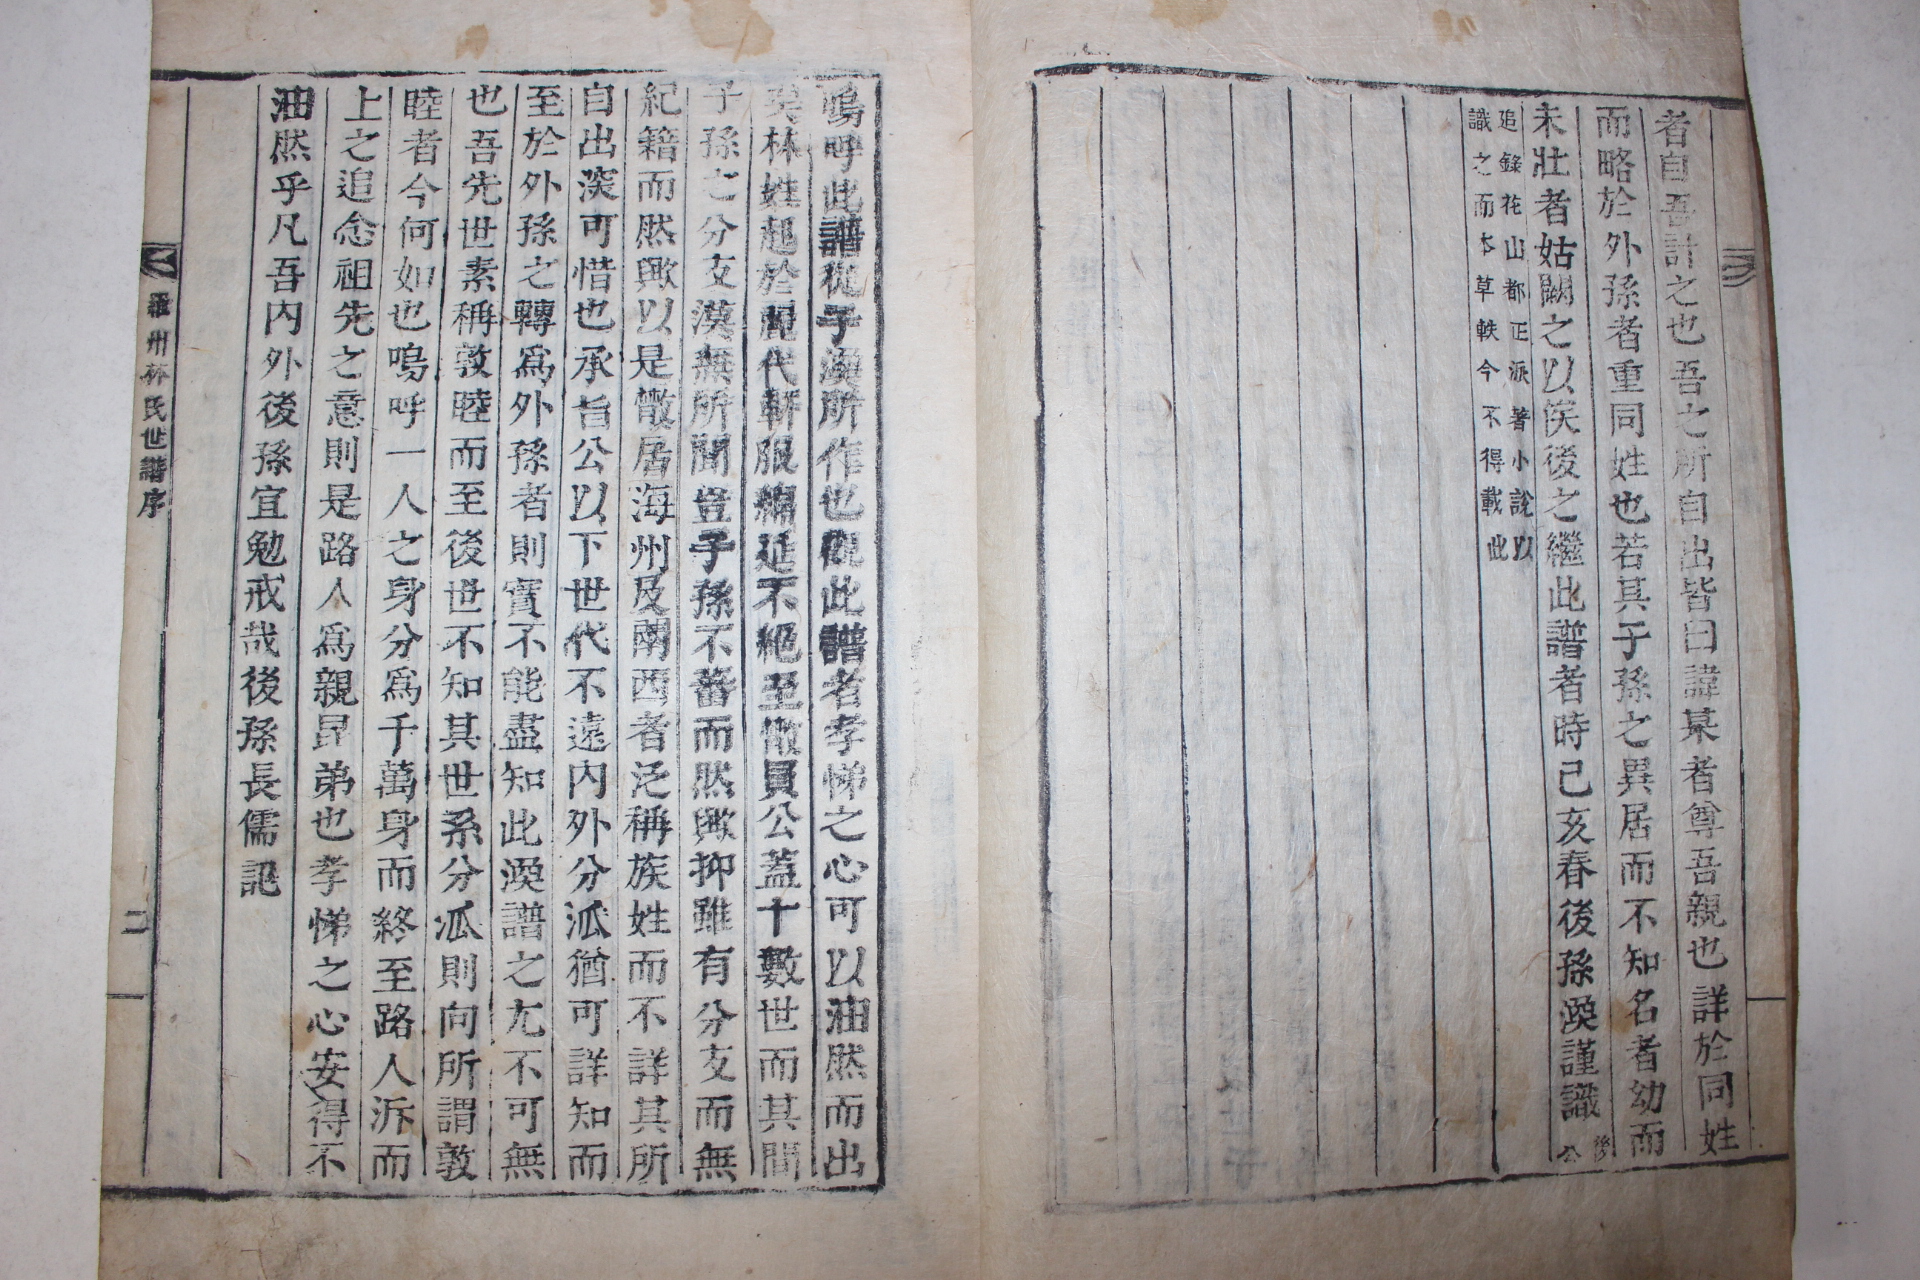 者自吾計之也吾之所自出皆曰諱某者尊吾親也詳於同姓
而略於外孫者重同姓也若其子孫之異居而不知名者幼而
未壯者姑闕之以俟後之繼此譜者時己亥春後孫渙謹識 後公
追錄花山都正派著小說以
識之而本草軼今不得載此
嗚呼此譜從子渙所作也觀此譜者孝悌之心可以油然而出
矣林姓起於麗代軒服綿延不絕至儆員公蓋十數世而其間
子孫之分支漠無所聞豈子孫不蕃而然歟抑雖有分支而無
紀籍而然歟以是散居海州及關西者泛稱族姓而不詳其所
自出深可惜也承旨公以下世代不遠內外分派猶可詳知而
至於外孫之轉爲外孫者則實不能盡知此渙譜之尤不可無
也吾先世素稱敦睦而至後世不知其世系分派則向所謂敦
睦者今何如也嗚呼一人之身分爲千萬身而終至路人泝而
上之追念祖先之意則是路人爲親昆弟也孝悌之心安得不
油然乎凡吾內外後孫宜勉戒哉後孫長儒記
羅州林氏世譜序
二